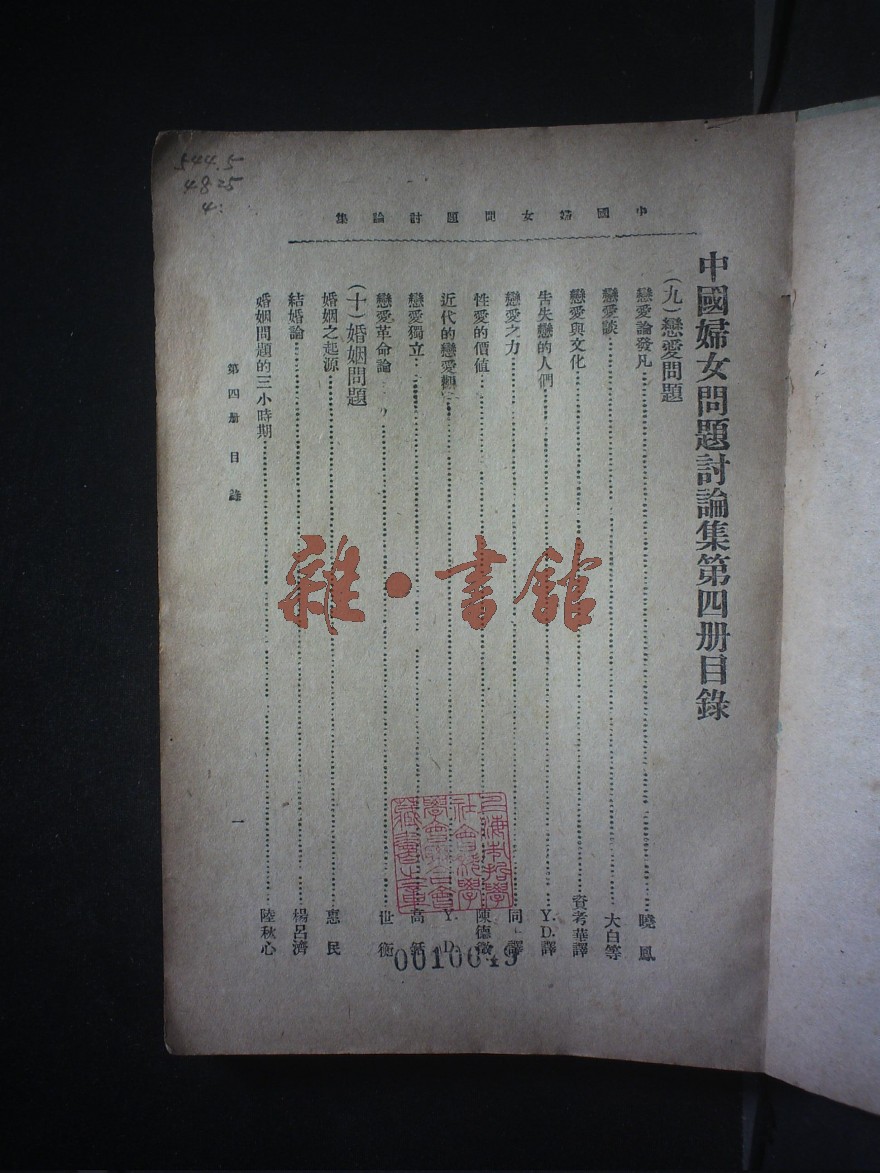 544.5
4825
4:
中國婦女問題討論集
中國婦女問題討論集第四册目錄
（九）戀愛問題
戀愛論發凡……曉鳳
戀愛談……大白等
戀愛與文化……資考華譯
告失戀的人們……Y.D.譯
戀愛之力……同 譯
性愛的價值……陳德徵
近代的戀愛觀……Y. D.
戀愛獨立……高銛
戀愛革命論……世衡
（十）婚姻問題
婚姻之起源……惠民
結婚論……楊呂濟
婚姻問題的三小時期……陸秋心
第四册 目錄
一
雜·書館
0010049